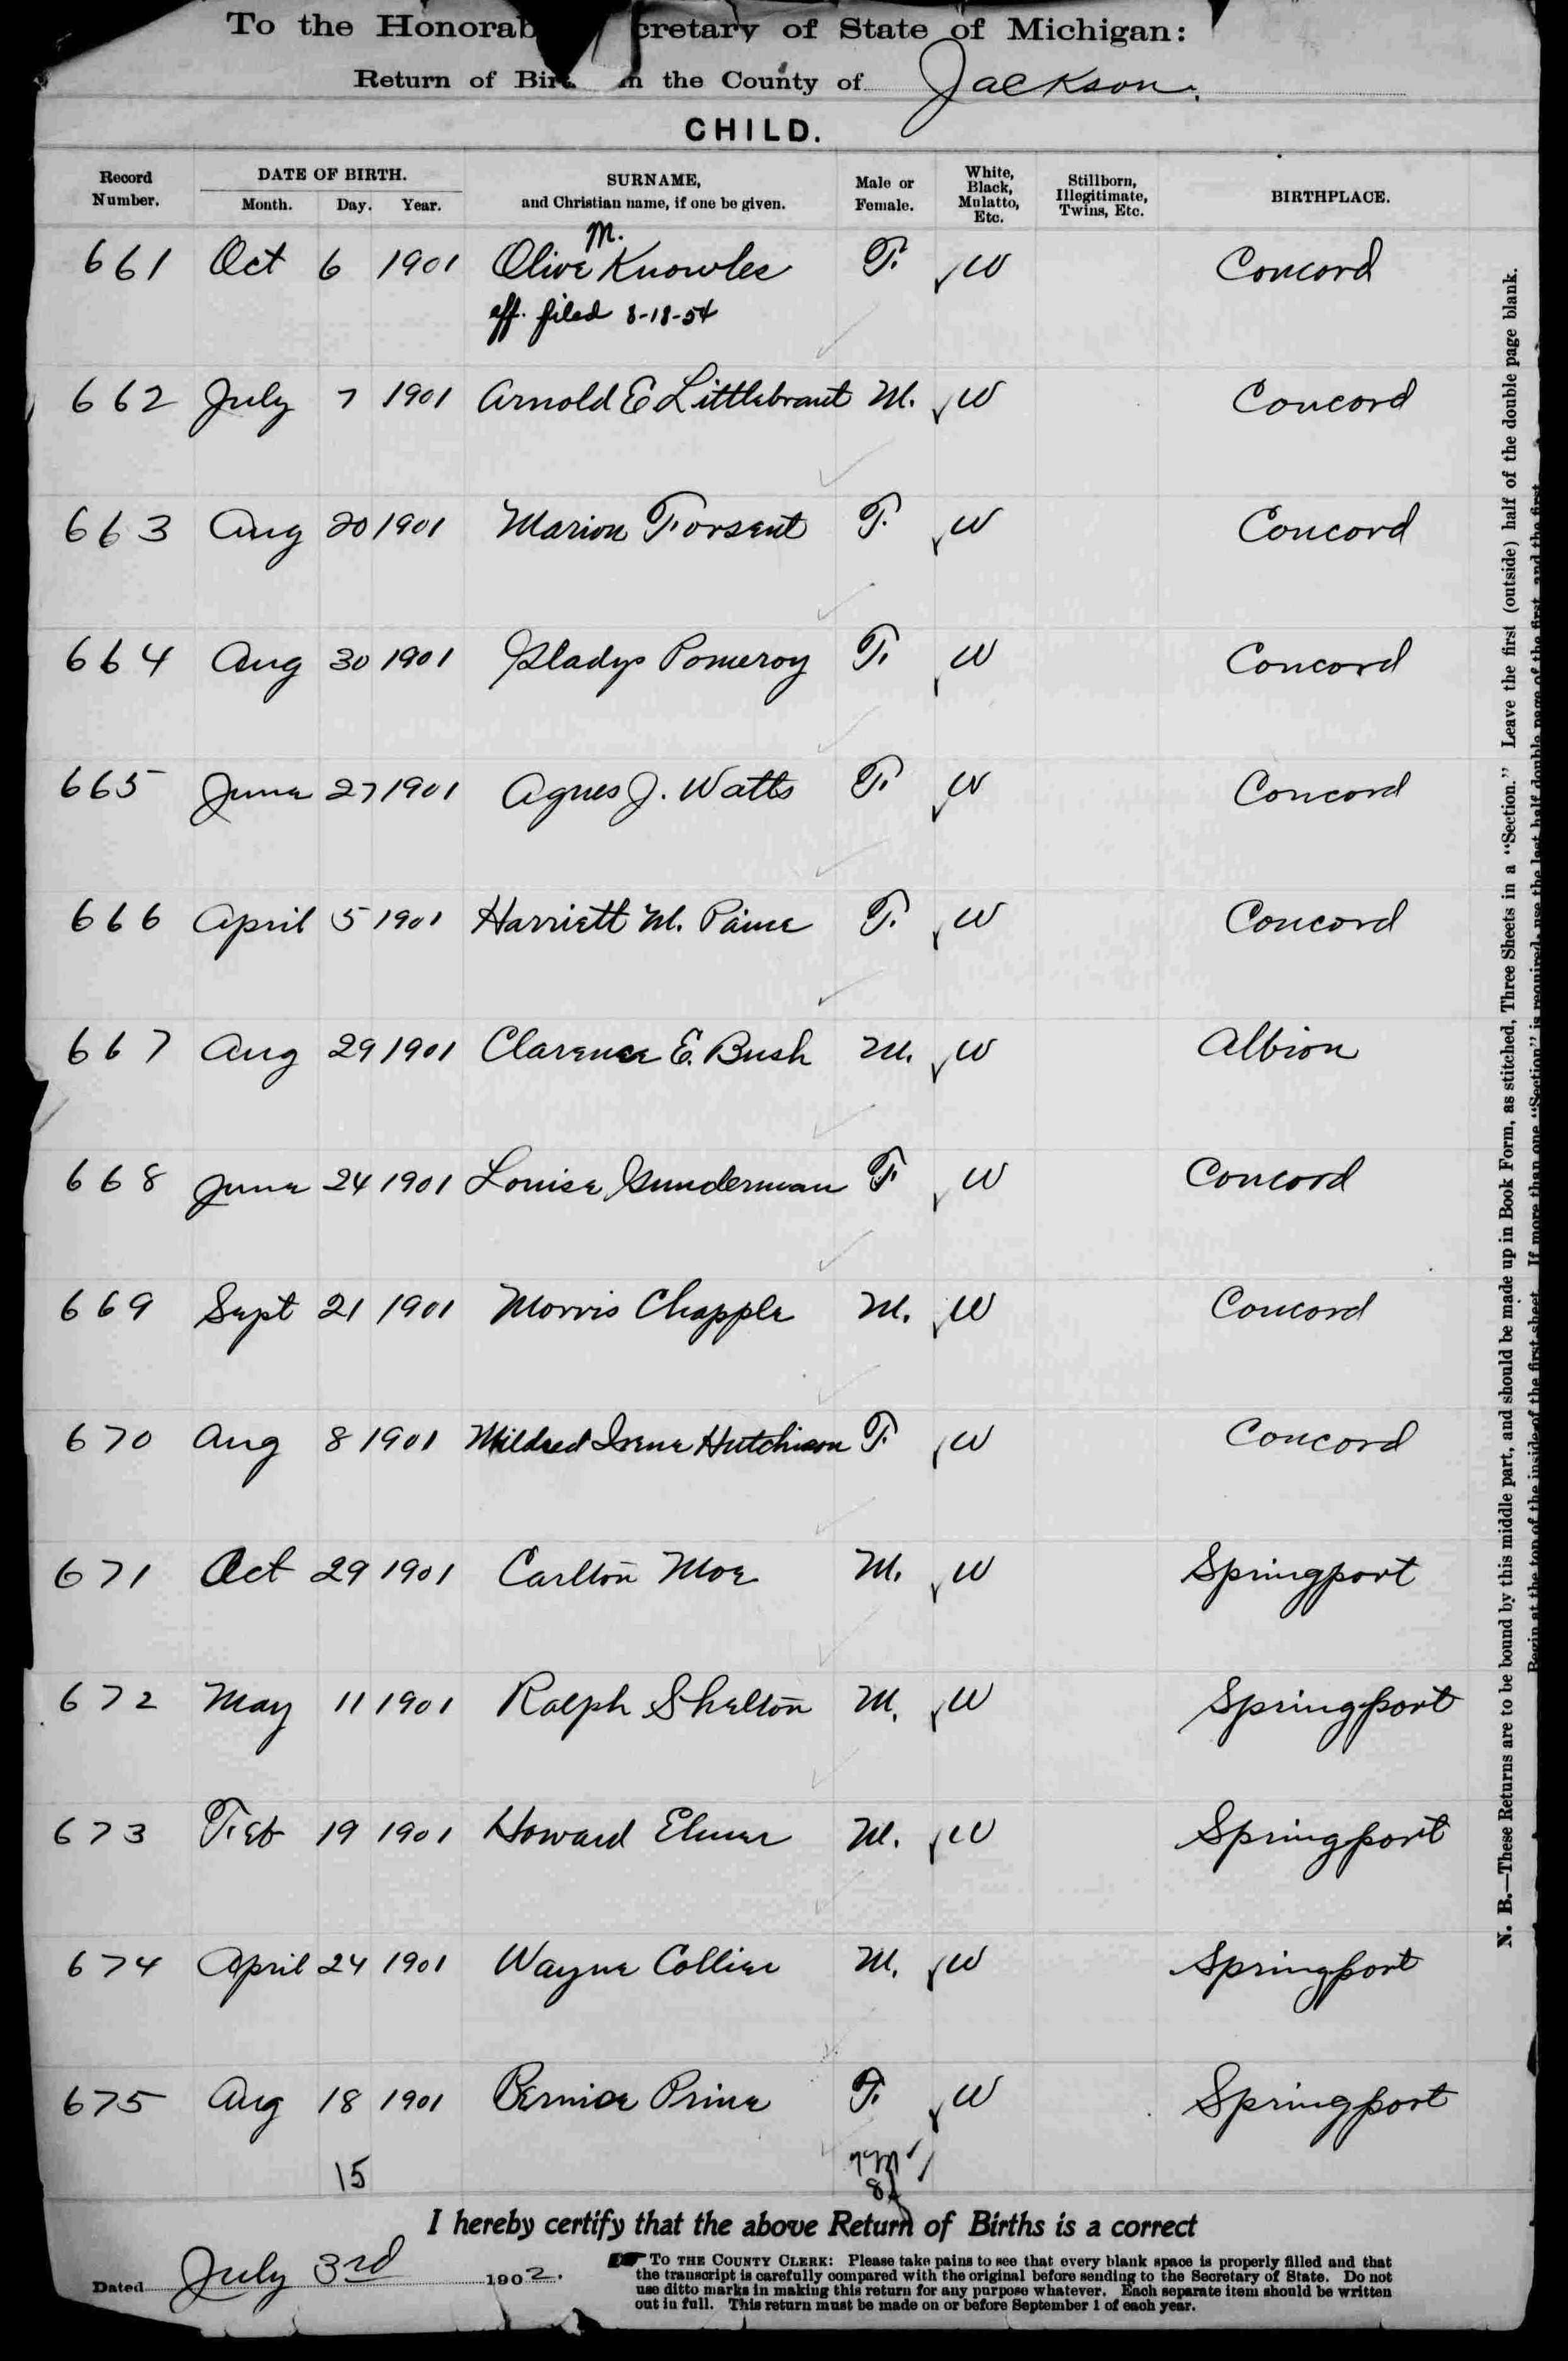 To the Honorab cretary of State of Michigan:
Return of Birt in the County of Jackson.
CHILD.
Record Number. DATE OF BIRTH. Month. Day. Year. SURNAME, and Christian name, if one be given. Male or Female. White, Black, Mulatto, Etc. Stillborn, Illegitimate, Twins, Etc. BIRTHPLACE.
M.
661 Oct 6 1901 Olive Knowles F. W Concord
aff. filed 8-18-54
662 July 7 1901 Arnold E Littlebrant M. W Concord
663 Aug 20 1901 Marion Forsent F. W Concord
664 Aug 30 1901 Gladys Pomeroy F. W Concord
665 June 27 1901 Agnes J. Watts F. W Concord
666 April 5 1901 Harriett M. Paine F. W Concord
667 Aug 29 1901 Clarence E. Bush M. W Albion
668 June 24 1901 Louise Gunderman F. W Concord
669 Sept 21 1901 Morris Chapple M. W Concord
670 Aug 8 1901 Mildred Irene Hutchison F. W Concord
671 Oct 29 1901 Carlton Moe M. W Springport
672 May 11 1901 Ralph Shelton M. W Springport
673 Feb 19 1901 Howard Elmer M. W Springport
674 April 24 1901 Wayne Collier M. W Springport
675 Aug 18 1901 Bernice Prine F. W Springport
15 7M
8f
I hereby certify that the above Return of Births is a correct
Dated July 3rd 1902.
To the County Clerk: Please take pains to see that every blank space is properly filled and that
the transcript is carefully compared with the original before sending to the Secretary of State. Do not
use ditto marks in making this return for any purpose whatever. Each separate item should be written
out in full. This return must be made on or before September 1 of each year.
N. B.—These Returns are to be bound by this middle part, and should be made up in Book Form, as stitched, Three Sheets in a "Section." Leave the first (outside) half of the double page blank.
Begin at the top of the inside of the first sheet. If more than one "Section" is required, use the last half double page of the first, and the first